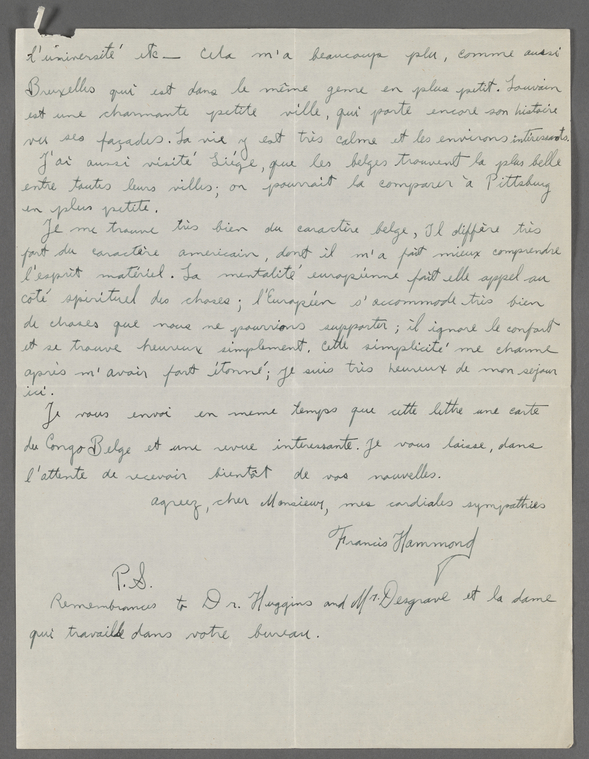 d'úniversité etc— Cela m'a beaucoup plu, comme aussi
Bruxelles qui est dans le même genre en plus petit. Louvain
est une charmante petite ville, qui porte encore son histoire
vu ses façades. La vie y est très calme et les environs intéressants.
J'ai aussi visité Liége, que les belges trouvent la plus belle
entre toutes leurs villes; on pourrait la comparer à Pittsburg
en plus petite.
Je me trouve très bien du caractère belge, Il diffère très
fort du caractère americain, dont il m'a fait mieux comprendre
l'esprit matériel. La mentalité européenne fait elle appel au
coté spirituel des choses; l'Européen s'accommode très bien
de choses que nous ne pourrions supporter; il ignore le confort
et se trouve heureux simplement. Cette simplicité me charme
après m'avoir fort étonné; je suis très heureux de mon sejour
ici.
Je vous envoi en meme temps que cette lettre une carte
du Congo Belge et une revue interessante. Je vous laisse, dans
l'attente de recevoir bientôt de vos nouvelles.
Agreez, cher Monsieur, mes cordiales sympathies
Francis Hammond
P.S.
Remembrances to Dr. Huggins and Mr. Desgrave et la dame
qui travaille dans votre bureau.